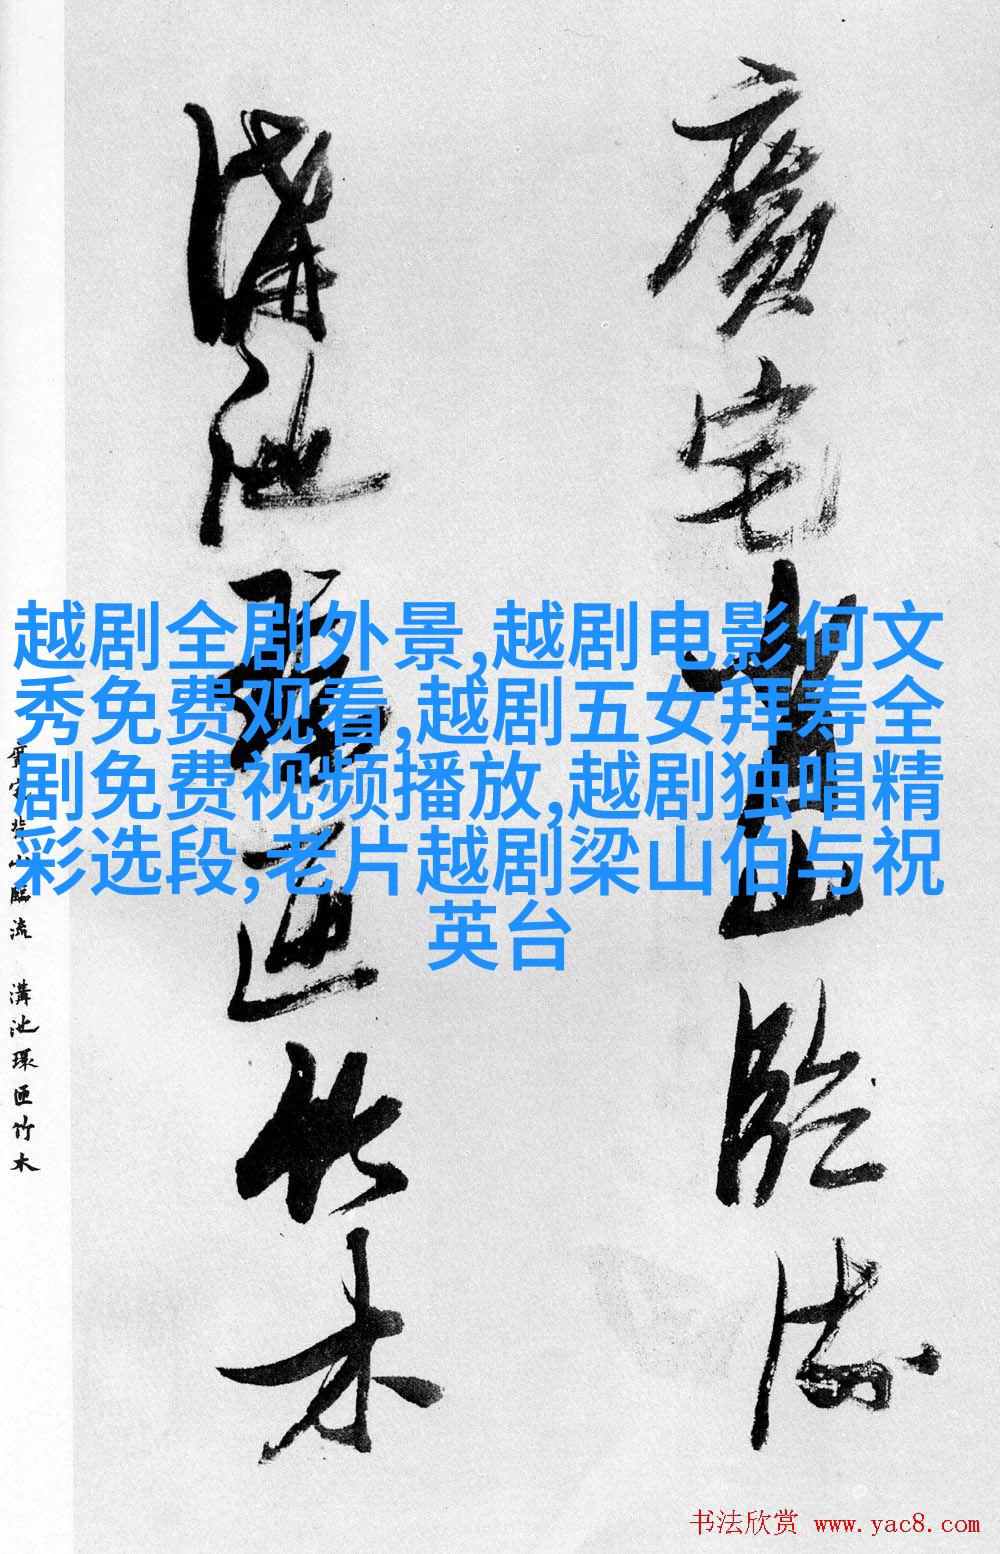 廣宅背山臨流
溝池環匝竹木
越剧全剧外景,越剧电影何文
秀免费观看,越剧五女拜寿全
剧免费视频播放,越剧独唱精
彩选段,老片越剧梁山伯与祝
英台
廣宅背山臨流 溝池環匝竹木
书法欣赏 www.yac8.com